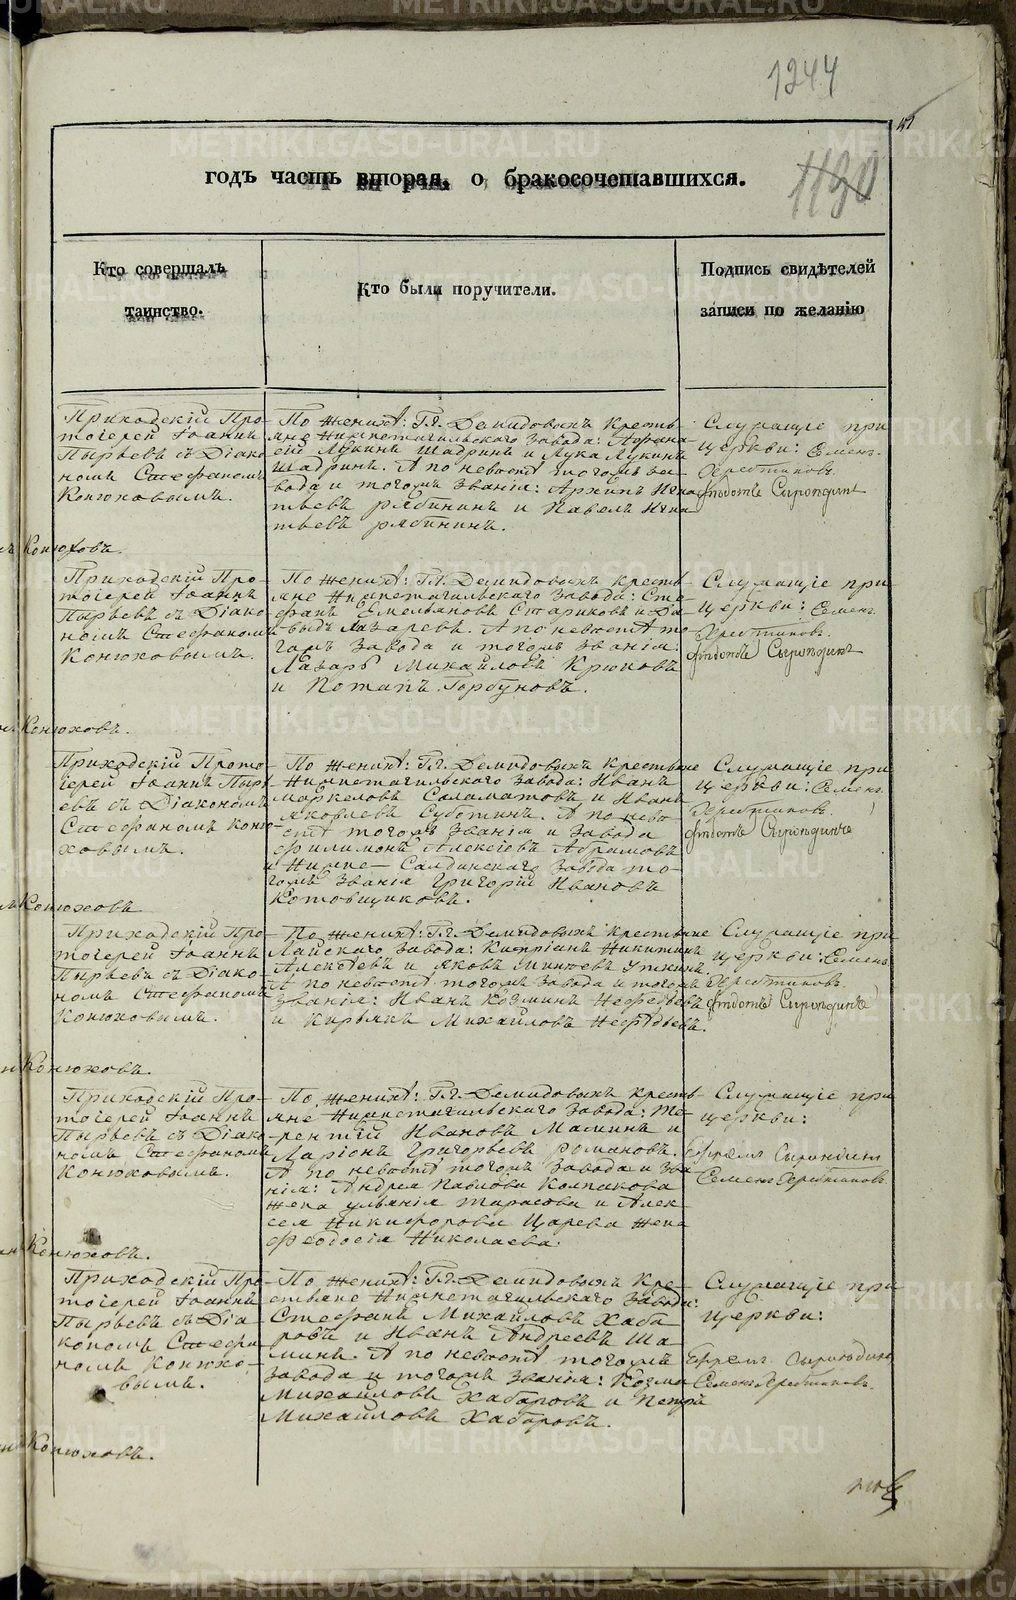 1244
1130
годъ часть вторая, о бракосочетавшихся.
Кто совершалъ
таинство.
Кто были поручители.
Подпись свидѣтелей
записи по желанію
Приходскій Про-
тоіерей Іоаннъ
Пырьевъ съ Діако
номъ Стефаномъ
Конюховымъ.
По женихѣ: Гг. Демидовыхъ кресть-
яне Нижнетагильскаго завода: Афана
сій Лукинъ Шадринъ и Лука Лукинъ
Шадринъ. А по невѣстѣ тогожъ за-
вода и тогожъ званія: Архипъ Игна
тьевъ Рябининъ и Павелъ Игна
тьевъ Рябининъ.
Служащіе при
церкви: Семенъ
Серебряковъ
Конюховъ.
Приходскій Про-
тоіерей Іоаннъ
Пырьевъ съ Діако
номъ Стефаномъ
Конюховымъ.
По женихѣ: Гг. Демидовыхъ кресть-
яне Нижнетагильскаго завода: Сте-
фанъ Емельяновъ Стариковъ и Да-
выдъ Лазаревъ. А по невѣстѣ то
гожъ завода и тогожъ званія:
Лазарь Михайловъ Крюковъ
и Потапъ Горбуновъ.
Служащіе при
церкви: Семенъ
Конюховъ.
Приходскій Прото-
іерей Іоаннъ Пырь
евъ съ Діакономъ
Стефаномъ Коню-
ховымъ.
По женихѣ: Гг. Демидовыхъ крестьяне
Нижнетагильскаго завода: Иванъ
Маркеловъ Саламатовъ и Иванъ
Яковлевъ Субботинъ. А по невѣ-
стѣ тогожъ званія и завода
Филимонъ Алексіевъ Абрамовъ
и Нижне-Салдинскаго завода то-
гожъ званія Григорій Ивановъ
Котовщиковъ.
Служащіе при
церкви: Семенъ
Конюховъ
Приходскій Про-
тоіерей Іоаннъ
Пырьевъ съ Діако-
номъ Стефаномъ
Конюховымъ.
По женихѣ: Гг. Демидовыхъ крестьяне
Лайскаго завода: Кипріанъ Никитинъ
Алексѣевъ и Яковъ Минѣевъ Уткинъ.
А по невѣстѣ тогожъ завода и тогожъ
званія: Иванъ Козминъ Нефедьевъ
и Кирьякъ Михайловъ Нефедьевъ.
Служащіе при
церкви: Семенъ
Конюховъ.
Приходскій Про-
тоіерей Іоаннъ
Пырьевъ съ Діако
номъ Стефаномъ
Конюховымъ.
По женихѣ: Гг. Демидовыхъ кресть-
яне Нижнетагильскаго завода: Те-
рентій Ивановъ Маминъ и
Ларіонъ Григорьевъ Романовъ.
А по невѣстѣ тогожъ завода и зва
нія: Андрея Павлова Колпакова
жена Ульянія Тарасова и Алек-
сея Никифорова Царева жена
Феодосія Николаева.
Служащіе при
церкви:
Конюховъ.
Приходскій Про-
тоіерей Іоаннъ
Пырьевъ съ Діа-
кономъ Стефа-
номъ Конюхо-
вымъ.
По женихѣ: Гг. Демидовыхъ Кре-
стьяне Нижнетагильскаго завода:
Стефанъ Михайловъ Хаба
ровъ и Иванъ Андреевъ Ша
минъ. А по невѣстѣ тогожъ
завода и тогожъ званія: Козма
Михайловъ Хабаровъ и Петръ
Михайловъ Хабаровъ.
Служащіе при
церкви:
Конюховъ.
METRIKI.GASO-URAL.RU